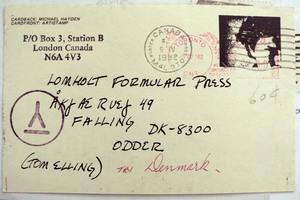 CARDBACK: MICHAEL HAYDEN
CARDFRONT: ARTISTAMP
P/O Box 3, Station B
London Canada
N6A 4V3
CANADA
1982
LOMHOLT FORMULAR PRESS
ÅKJÆRVEJ 49
FALLING DK-8300
ODDER
(TOM ELLING)
TRY Denmark.
60¢